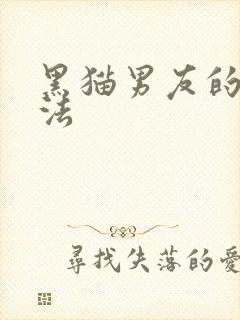 黑猫男友的
法
寻找失落的爱